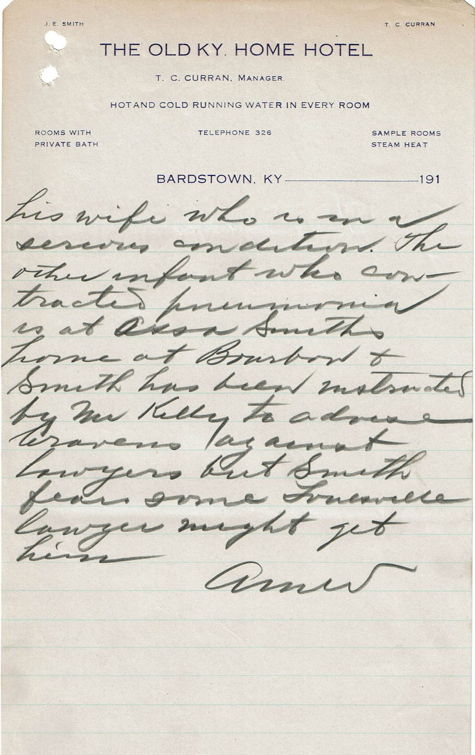 J. E. SMITH T. C. CURRAN
THE OLD KY. HOME HOTEL
T. C. CURRAN, MANAGER.
HOT AND COLD RUNNING WATER IN EVERY ROOM
ROOMS WITH TELEPHONE 326 SAMPLE ROOMS
PRIVATE BATH STEAM HEAT
BARDSTOWN, KY 191
his wife who is in a
serious condition. The
other infant who con-
tracted pneumonia
is at Smiths
home at Bourbon &
Smith has been instructed
by Mr Kelly to advise
Cravens against
lawyers but Smith
fears some Louesville
lawyer might get
him